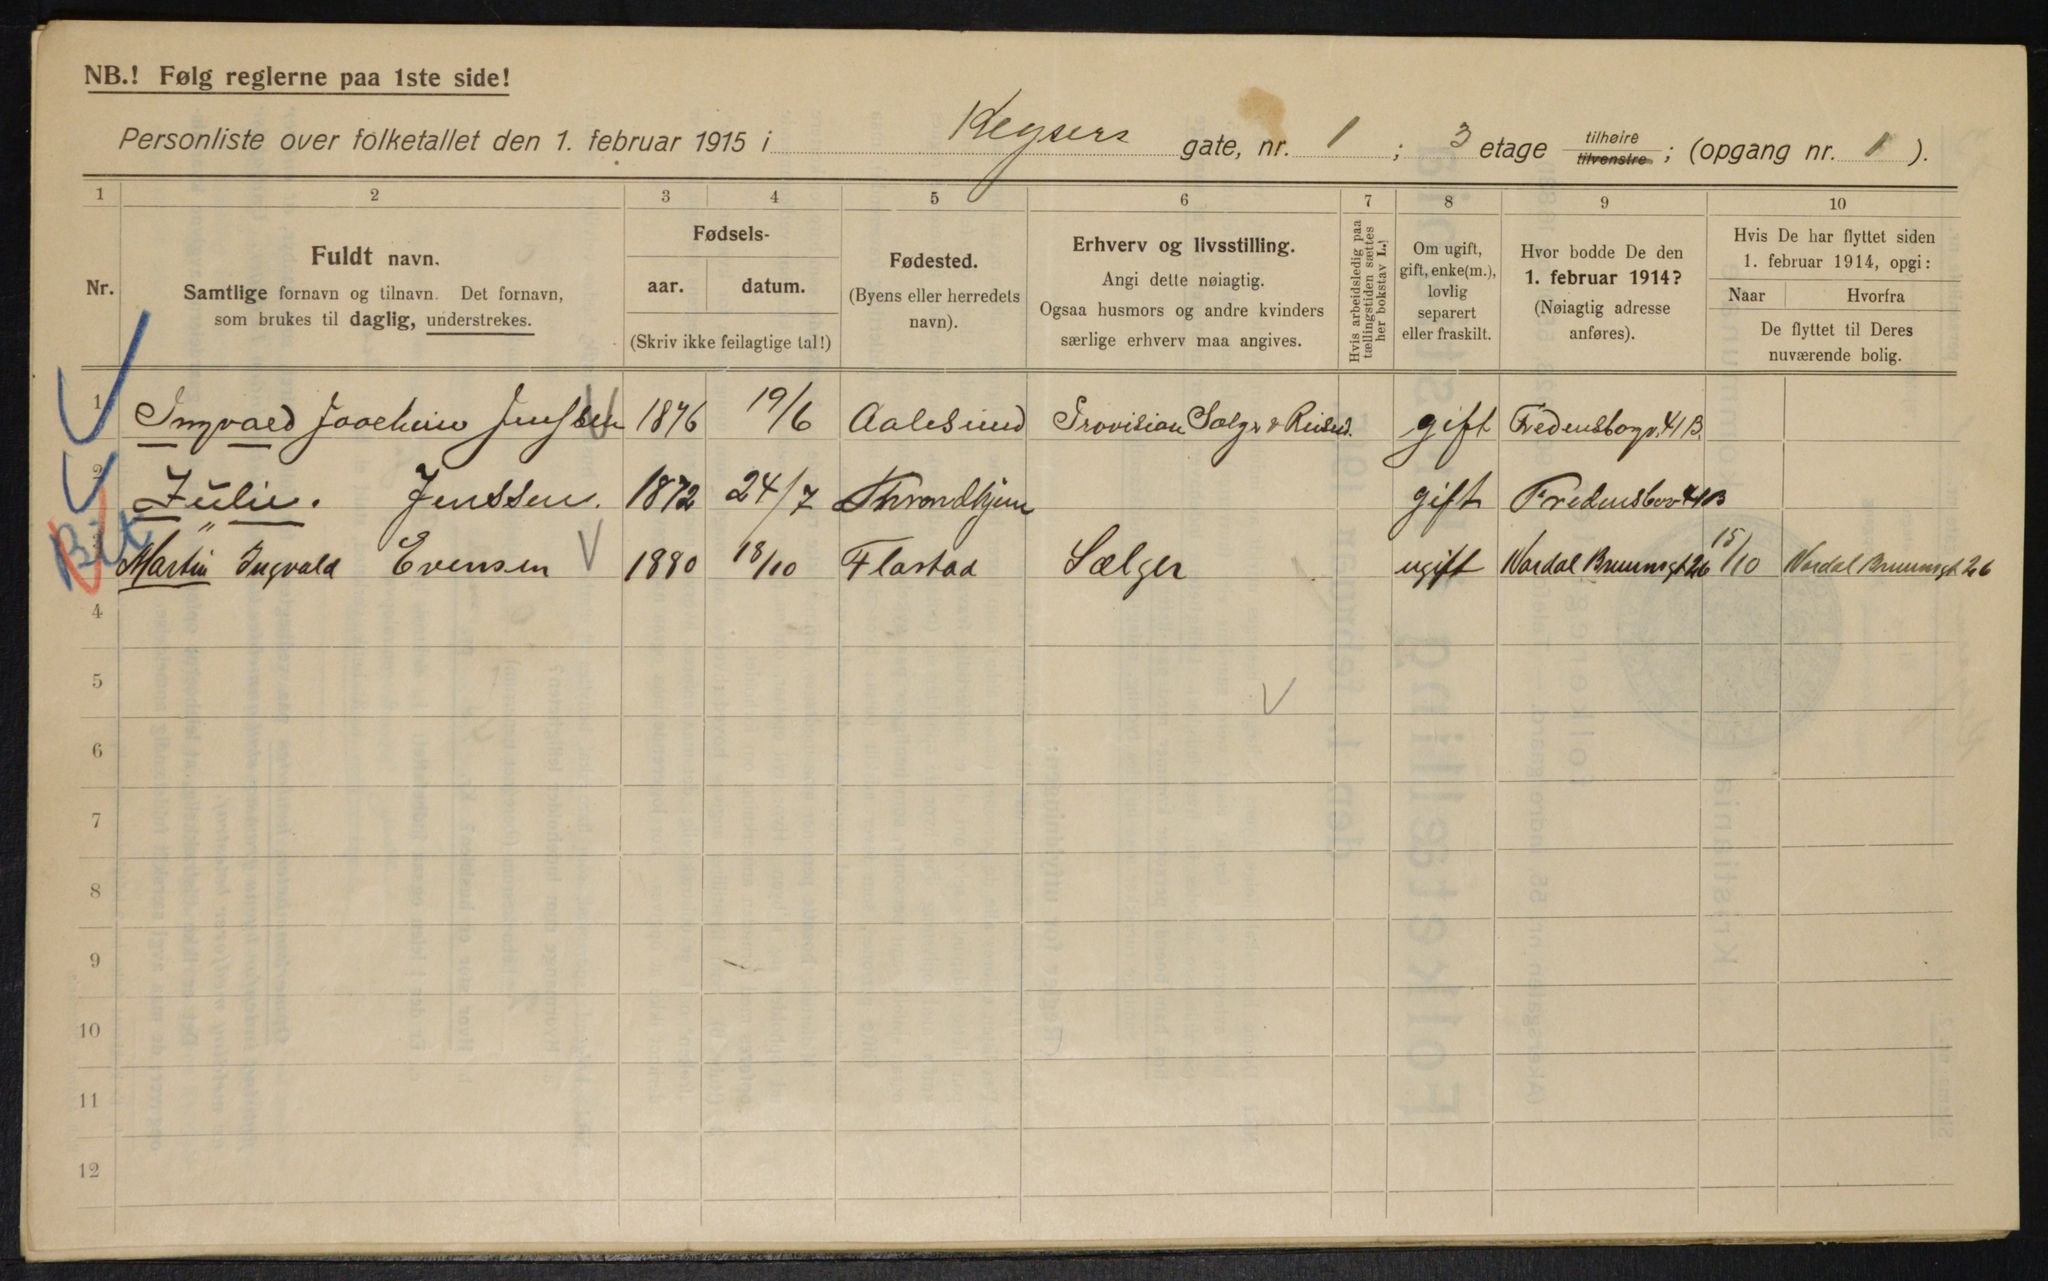 NB.! Følg reglerne paa 1ste side!
Personliste over folketallet den 1. februar 1915 i Keysers gate, nr. 1 ; 3 etage tilhøire tilvenstre ; (opgang nr. 1 ).
1 2 3 4 5 6 7 8 9 10
Nr.
Fuldt navn.
Samtlige fornavn og tilnavn. Det fornavn,
som brukes til daglig, understrekes.
Fødsels-
aar. datum.
(Skriv ikke feilagtige tal!)
Fødested.
(Byens eller herredets
navn).
Erhverv og livsstilling.
Angi dette nøiagtig.
Ogsaa husmors og andre kvinders
særlige erhverv maa angives.
Hvis arbeidsledig paa
tællingstiden sættes
her bokstav L.!
Om ugift,
gift, enke(m.),
lovlig
separert
eller fraskilt.
Hvor bodde De den
1. februar 1914?
(Nøiagtig adresse
anføres).
Hvis De har flyttet siden
1. februar 1914, opgi:
Naar Hvorfra
De flyttet til Deres
nuværende bolig.
1 Ingvald Joachim Jenssen 1876 19/6 Aalesund Provision Sælger & Reisend. gift Fredensborgv. 41 B.
2 Julie. Jenssen. 1872 24/7 Throndhjem gift Fredensborv 41 B
3 Martin Ingvald Evensen 1880 18/10 Flastad Sælger ugift Nordal Bruunsgt 26 15/10 Nordal Bruunsgt 26
Bit
4
5
6
7
8
9
10
11
12